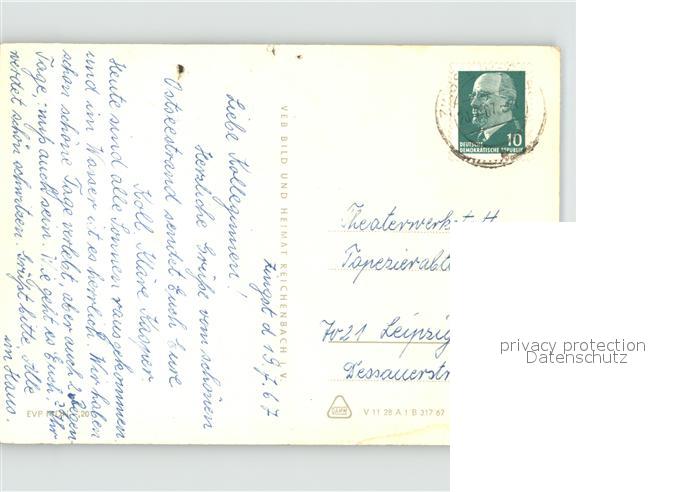 Zingst d 19.7.67
Liebe Kolleginnen!
Herzliche Grüße vom schönen
Ostseestrand sendet Euch Eure
Koll. Kläre Kasper
Heute sind alle Sonnen rausgekommen
und im Wasser ist es herrlich. Wir haben
schon schöne Tage verlebt, aber auch 2 Regen-
Tage, muß auch sein. Wie geht es Euch? Ihr
werdet schön schwitzen. Grüßt bitte Alle
im Haus.
VEB BILD UND HEIMAT REICHENBACH I. V.
10
DEUTSCHE
DEMOKRATISCHE REPUBLIK
Theaterwerkst
Tapezierabt
7021 Leipzig
Dessauerstr
V 11 28 A 1 B 317 67
EVP
20
privacy protection
Datenschutz